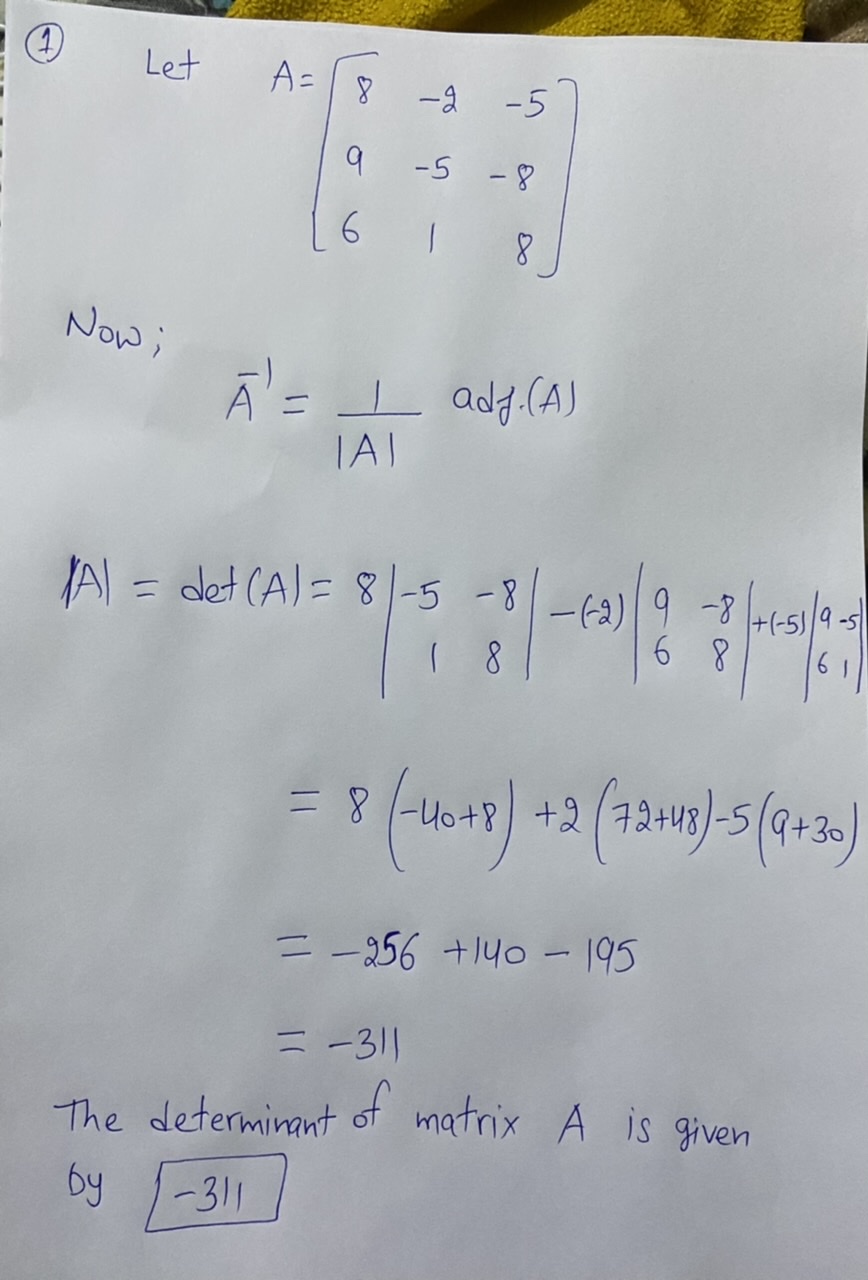 1
Let A = [ 8 -2 -5
9 -5 -8
6 1 8 ]
Now;
A⁻¹ = 1/|A| adj.(A)
|A| = det(A) = 8 |-5 -8; 1 8| -(-2) |9 -8; 6 8| +(-5) |9 -5; 6 1|
= 8 (-40+8) +2 (72+48) -5 (9+30)
= -256 +140 - 195
= -311
The determinant of matrix A is given
by -311